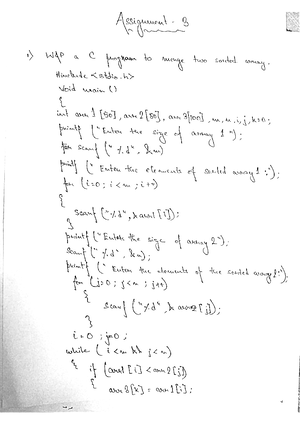 Assignment - 3
1) WAP a C program to merge two sorted array.
#include <stdio.h>
void main ()
{
int arr 1 [50], arr 2 [50], arr 3 [100], m, n, i, j, k=0;
printf ("Enter the size of array 1 ");
scanf (" %d", &m)
printf (" Enter the elements of sorted array 1 :");
for (i=0; i<m; i++)
{
scanf ("%d", & arr1 [i]);
}
printf ("Enter the size of array 2");
scanf (" %d", &n);
printf (" Enter the elements of the sorted array 2:");
for (j=0; j<n; j++)
{
scanf ("%d", & arr2 [j]);
}
i=0 ; j=0;
while ( i<m && j<n)
{ if (arr1 [i] < arr2 [j])
{ arr 3 [k] = arr 1 [i];